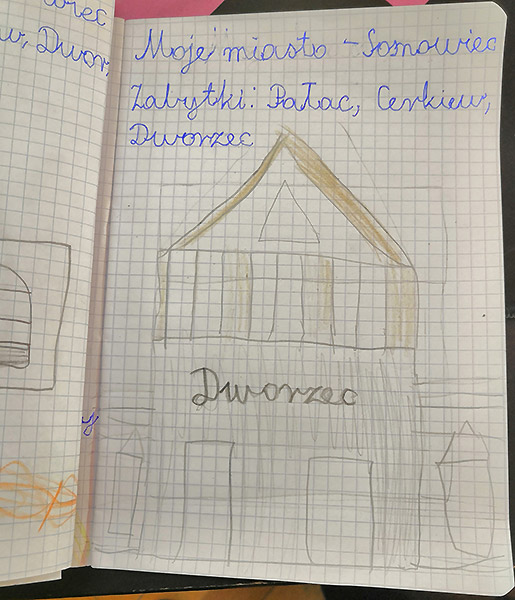 Moje miasto - Sosnowiec
Zabytki: Pałac, Cerkiew,
Dworzec
Dworzec